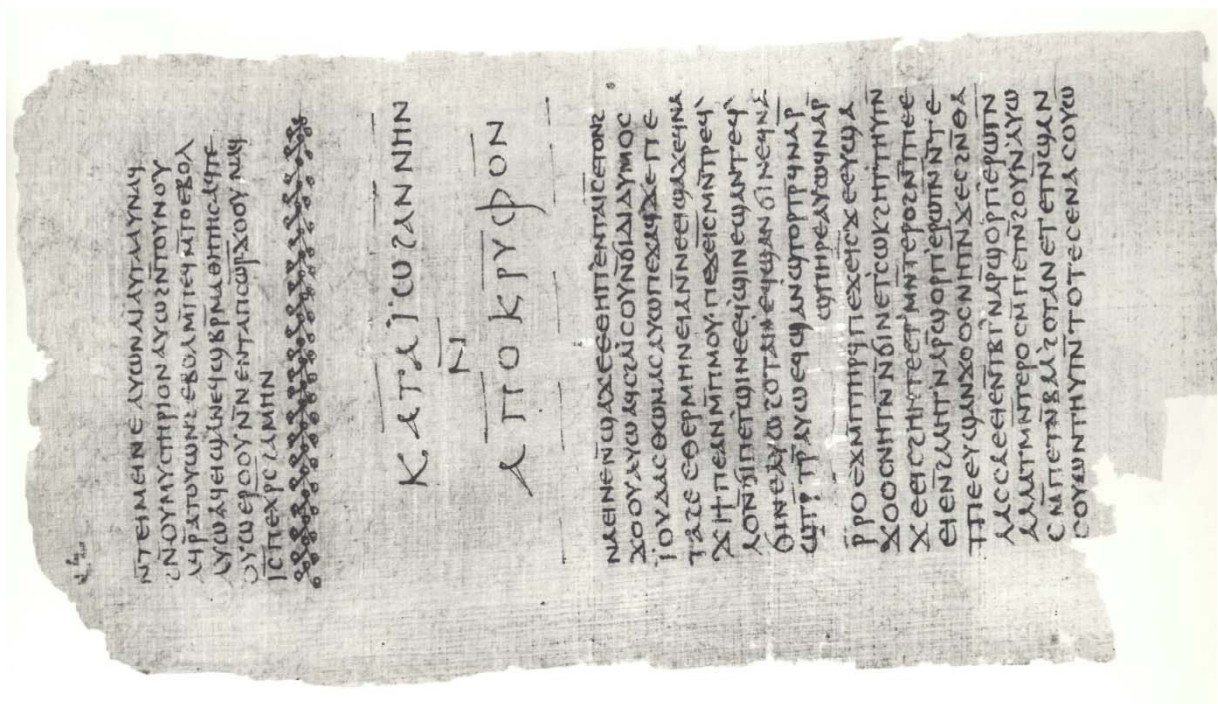 ⲛⲧⲉⲓⲙⲉⲓⲛⲉ ⲁⲩⲱ ⲛⲁⲓ ⲁⲩⲧⲁⲁⲩ ⲛⲁϥ
ϩⲛⲛⲟⲩⲙⲩⲥⲧⲏⲣⲓⲟⲛ ⲁⲩⲱ ϩⲛⲧⲟⲩⲛⲟⲩ
ⲁϥⲣ̄ⲁⲧⲟⲩⲱⲛϩ ⲉⲃⲟⲗ ⲙ̄ⲡⲉϥⲙ̄ⲧⲟ ⲉⲃⲟⲗ
ⲁⲩⲱ ⲁϥⲉⲓ ϣⲁ ⲛⲉϥϣⲃⲣⲙⲁⲑⲏⲧⲏⲥ ⲁϥϯⲡⲉ
ⲟⲩⲱ ⲉⲣⲟⲟⲩ ⲛ̄ⲛⲉⲛⲧⲁⲡⲥⲱ̄ⲣ̄ ϫⲟⲟⲩ ⲛⲁϥ
ⲓ̄ⲥ̄ ⲡⲉⲭ̄ⲣ̄ⲥ̄ ϩⲁⲙⲏⲛ
ⲕⲁⲧⲁ ⲓ̈ⲱϩⲁⲛⲛⲏⲛ
ⲛ̄
ⲁⲡⲟⲕⲣⲩⲫⲟⲛ
ⲛⲁⲉⲓ ⲛⲉ ⲛ̄ϣⲁϫⲉ ⲉⲑⲏⲡ ⲉⲛⲧⲁⲓ̄ⲥ̄ ⲉⲧⲟⲛϩ
ϫⲟⲟⲩ ⲁⲩⲱ ⲁϥⲥϩⲁⲓ̈ⲥⲟⲩ ⲛ̄ϭⲓ ⲇⲓⲇⲩⲙⲟⲥ
ⲓ̈ⲟⲩⲇⲁⲥ ⲑⲱⲙⲁⲥ ⲁⲩⲱ ⲡⲉϫⲁϥ ϫⲉ ⲡⲉ
ⲧⲁϩⲉ ⲉⲑⲉⲣⲙⲏⲛⲉⲓⲁ ⲛ̄ⲛⲉⲉⲓϣⲁϫⲉ ϥⲛⲁ
ϫⲓ ϯⲡⲉ ⲁⲛ ⲙ̄ⲡⲙⲟⲩ ⲡⲉϫⲉ ⲓ̄ⲥ̄ ⲙⲛ̄ⲧⲣⲉϥ
ⲗⲟ ⲛ̄ϭⲓ ⲡⲉⲧϣⲓⲛⲉ ⲉϥϣⲓⲛⲉ ϣⲁⲛⲧⲉϥ
ϭⲓⲛⲉ ⲁⲩⲱ ϩⲟⲧⲁⲛ ⲉϥϣⲁⲛϭⲓⲛⲉ ϥⲛⲁ
ϣⲧⲣ̄ⲧⲣ̄ ⲁⲩⲱ ⲉϥϣⲁⲛϣⲧⲟⲣⲧⲣ̄ ϥⲛⲁⲣ̄
ϣⲡⲏⲣⲉ ⲁⲩⲱ ϥⲛⲁⲣ̄
ⲣ̄ⲣⲟ ⲉϫⲙ̄ ⲡⲧⲏⲣϥ ⲡⲉϫⲉ ⲓ̄ⲥ̄ ϫⲉ ⲉⲩϣⲁ
ϫⲟⲟⲥ ⲛⲏⲧⲛ̄ ⲛ̄ϭⲓ ⲛⲉⲧⲥⲱⲕ ϩⲏⲧ ⲑⲏⲩⲧⲛ̄
ϫⲉ ⲉⲓⲥϩⲏⲏⲧⲉ ⲉⲧⲙⲛ̄ⲧⲉⲣⲟ ϩⲛ̄ ⲧⲡⲉ ⲉ
ⲉⲓⲉ ⲛ̄ϩⲁⲗⲏⲧ ⲛⲁⲣ̄ ϣⲟⲣⲡ ⲉⲣⲱⲧⲛ̄ ⲛ̄ⲧⲉ
ⲧⲡⲉ ⲉⲩϣⲁⲛϫⲟⲟⲥ ⲛⲏⲧⲛ̄ ϫⲉ ⲥϩⲛ̄ ⲑⲁ
ⲗⲁⲥⲥⲁ ⲉⲉⲓⲉ ⲛ̄ⲧⲃ̄ⲧ ⲛⲁⲣ̄ ϣⲟⲣⲡ ⲉⲣⲱⲧⲛ̄
ⲁⲗⲗⲁ ⲧⲙⲛ̄ⲧⲉⲣⲟ ⲥⲙ̄ⲡⲉⲧⲛ̄ϩⲟⲩⲛ ⲁⲩⲱ
ⲥⲙ̄ⲡⲉⲧⲛ̄ⲃⲁⲗ ϩⲟⲧⲁⲛ ⲉⲧⲉⲧⲛ̄ϣⲁⲛ
ⲥⲟⲩⲱⲛ ⲧⲏⲩⲧⲛ̄ ⲧⲟⲧⲉ ⲥⲉⲛⲁⲥⲟⲩⲱ